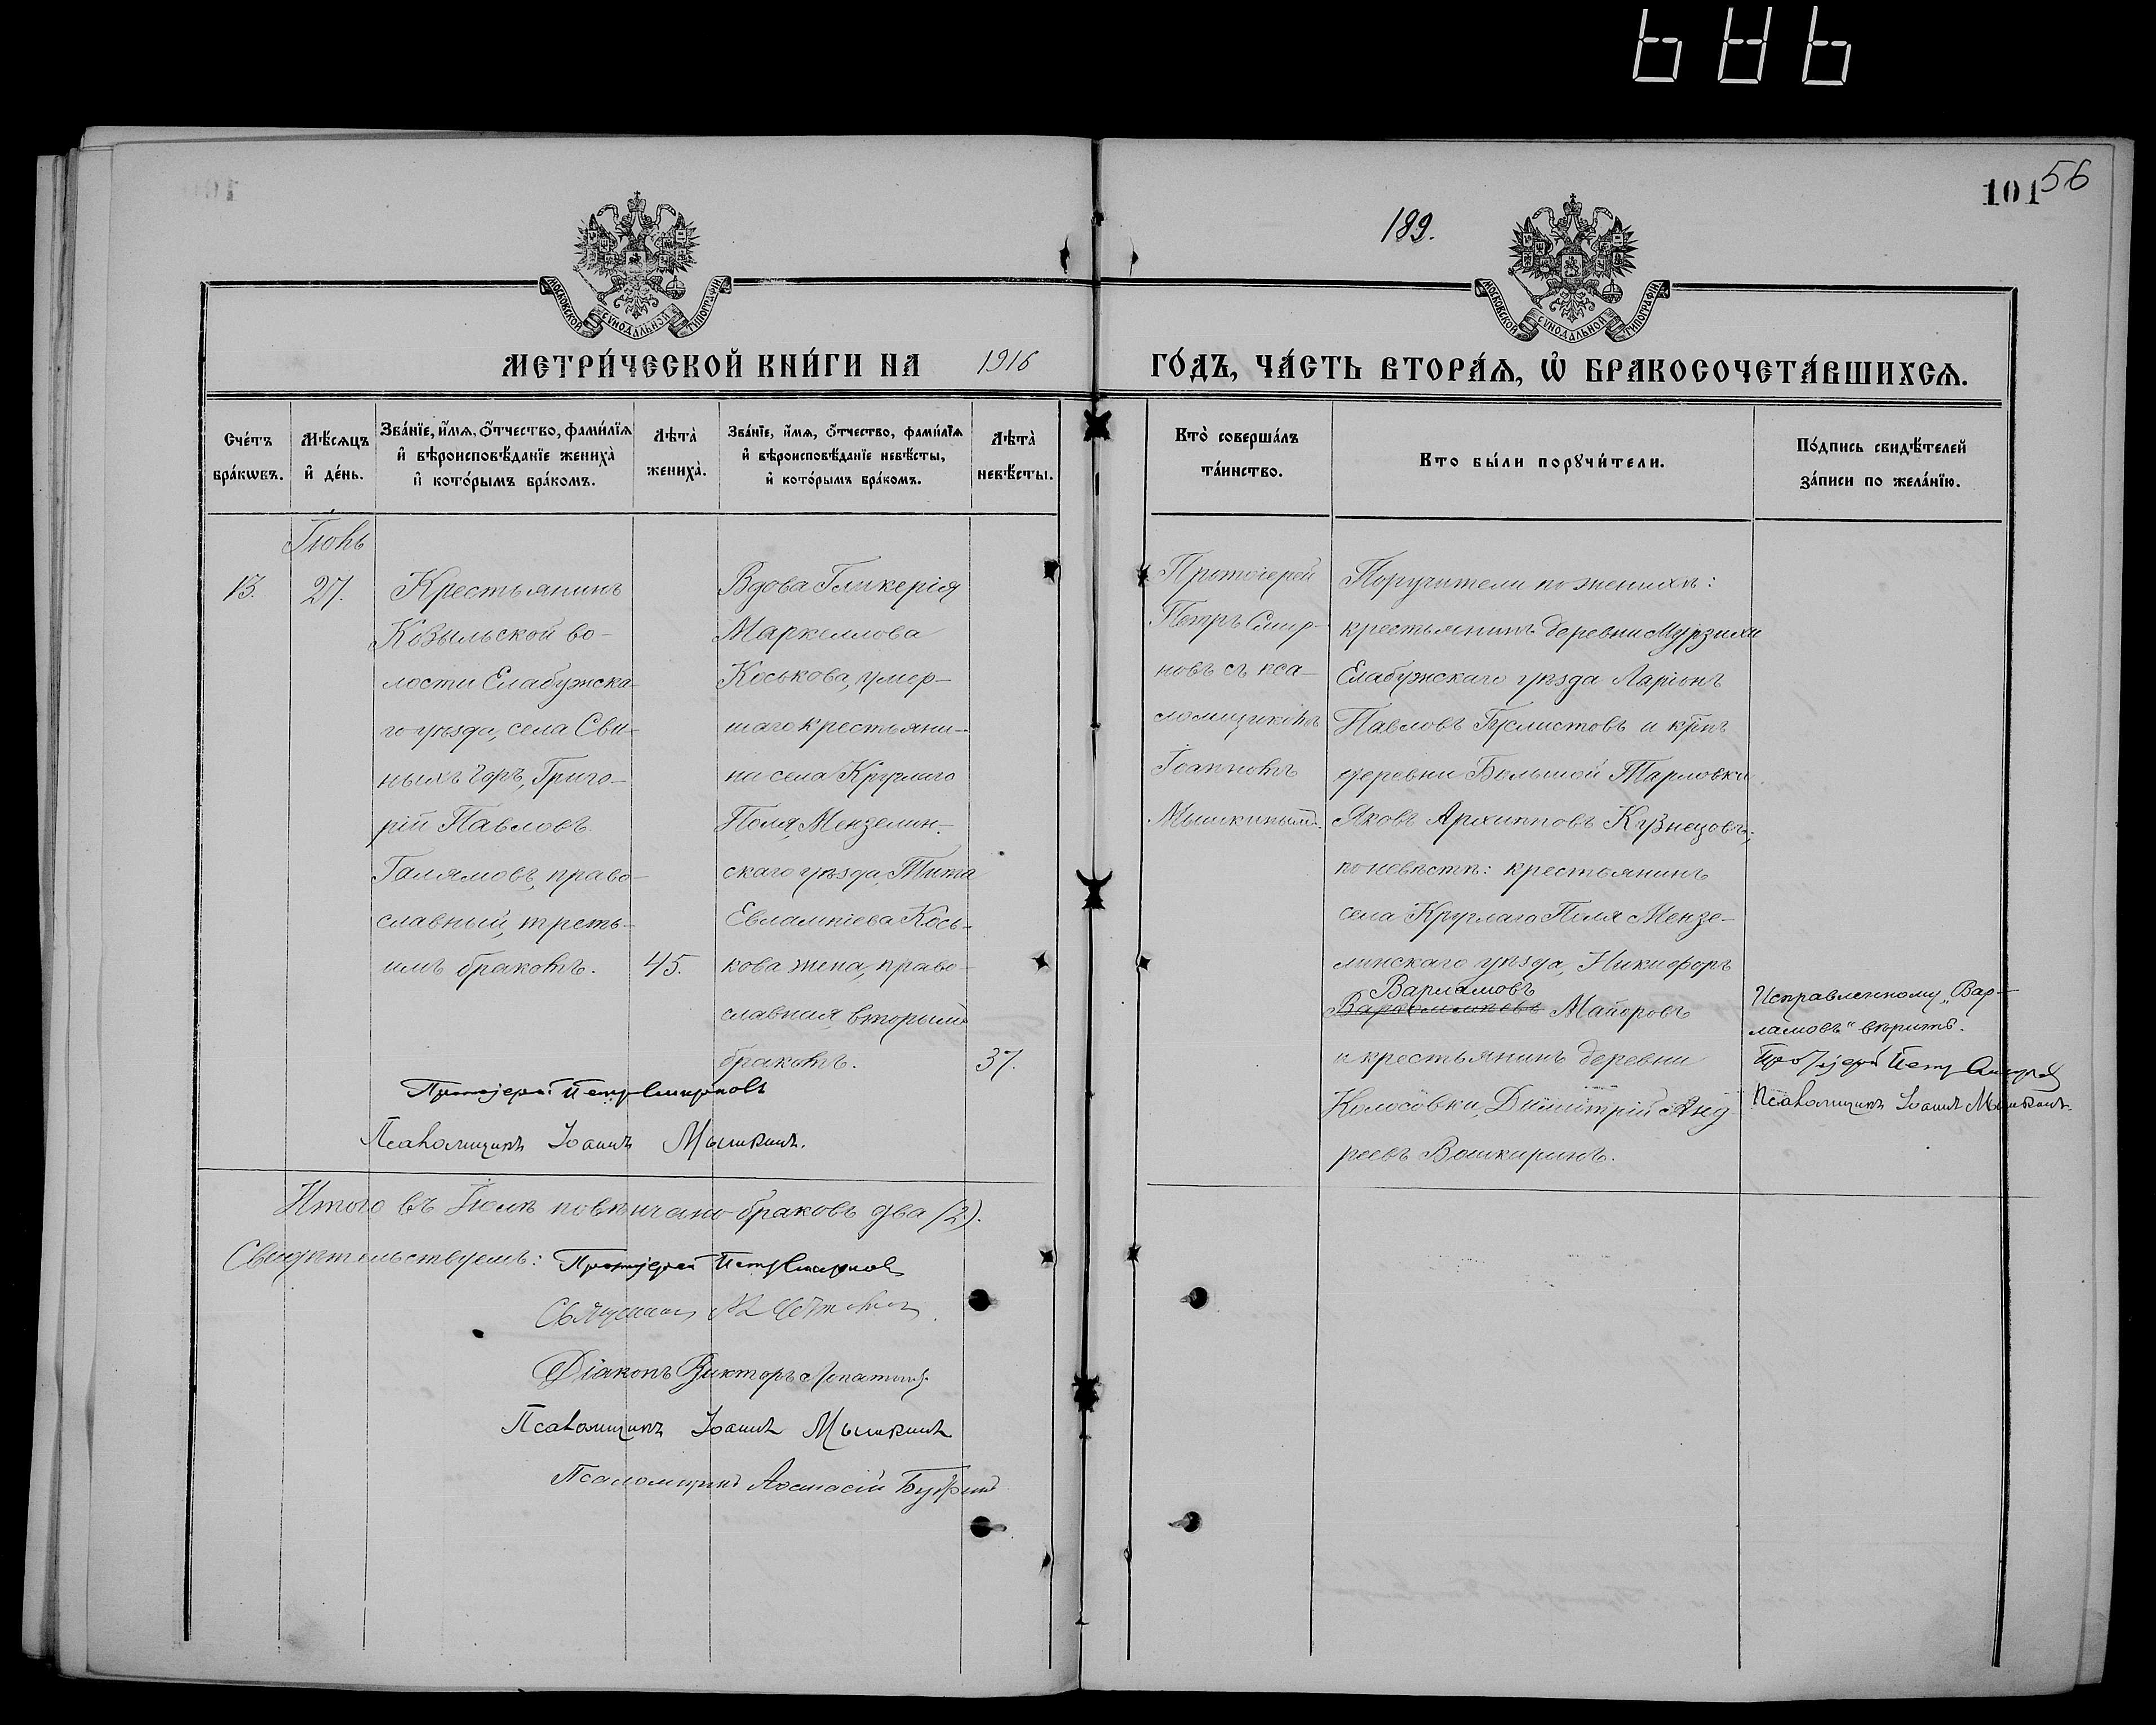 101 56
189.
МОСКОВСКОЙ СѴНОДАЛЬНОЙ ТИПОГРАФІИ
МОСКОВСКОЙ СѴНОДАЛЬНОЙ ТИПОГРАФІИ
МЕТРИ́ЧЕСКОЙ КНИ́ГИ НА 1916 ГО́ДЪ, ЧА́СТЬ ВТОРА́Ѧ, Ѡ҆ БРАКОСОЧЕТА́ВШИХСѦ.
Сче́тъ
бра́кѡвъ.
Мѣ́сѧцъ
и҆ де́нь.
Зва́нїе, и҆́мѧ, ѻ҆́тчество, фами́лїѧ
и҆ вѣроисповѣ́данїе жениха̀
и҆ кото́рымъ бра́комъ.
Лѣта̀
жениха̀.
Зва́нїе, и҆́мѧ, ѻ҆́тчество, фами́лїѧ
и҆ вѣроисповѣ́данїе невѣ́сты,
и҆ кото́рымъ бра́комъ.
Лѣта̀
невѣ́сты.
Кто̀ соверша́лъ
та́инство.
Кто бы́ли порꙋчи́тели.
По́дпись свидѣ́телей
за́писи по жела́нїю.
13.
27.
Крестьянинъ
Козыльской во-
лости Елабужска-
го уѣзда, села Сви-
ныхъ Горъ, Григо-
рій Павловъ
Галямовъ, право-
славный, треть-
имъ бракомъ.
45.
Вдова Гликерія
Маркеллова
Коськова, умер-
шаго крестьяни-
на села Круглаго
Поля, Мензелин-
скаго уѣзда, Тита
Евлампіева Кось-
кова жена, право-
славная, вторымъ
бракомъ.
37.
Протоіерей
Петръ Смир-
новъ съ пса-
ломщикомъ
Іоанномъ
Мышкинымъ.
Поручители по женихѣ:
крестьянинъ деревни Мурзихи
Елабужскаго уѣзда Ларіонъ
Павловъ Гуслистовъ и кр-нъ
деревни Большой Тарловки
Яковъ Архипповъ Кузнецовъ;
по невѣстѣ: крестьянинъ
села Круглаго Поля Мензе-
линскаго уѣзда, Никифоръ
Варламовъ
Майоровъ
и крестьянинъ деревни
Колосовки, Димитрій Анд-
реевъ Башкиринъ.
Исправленному „Вар-
ламовъ" вѣрить.
Протоіерей Петръ Смирновъ
Псаломщикъ Іоаннъ Мышкинъ.
Протоіерей Петръ Смирновъ
Псаломщикъ Іоаннъ Мышкинъ.
Итого въ повѣнчано браковъ два (2).
Свидѣтельствуемъ: Протоіерей Петръ Смирновъ
Священникъ
Діаконъ Викторъ Лопатинъ
Псаломщикъ Іоаннъ Мышкинъ
Псаломщикъ